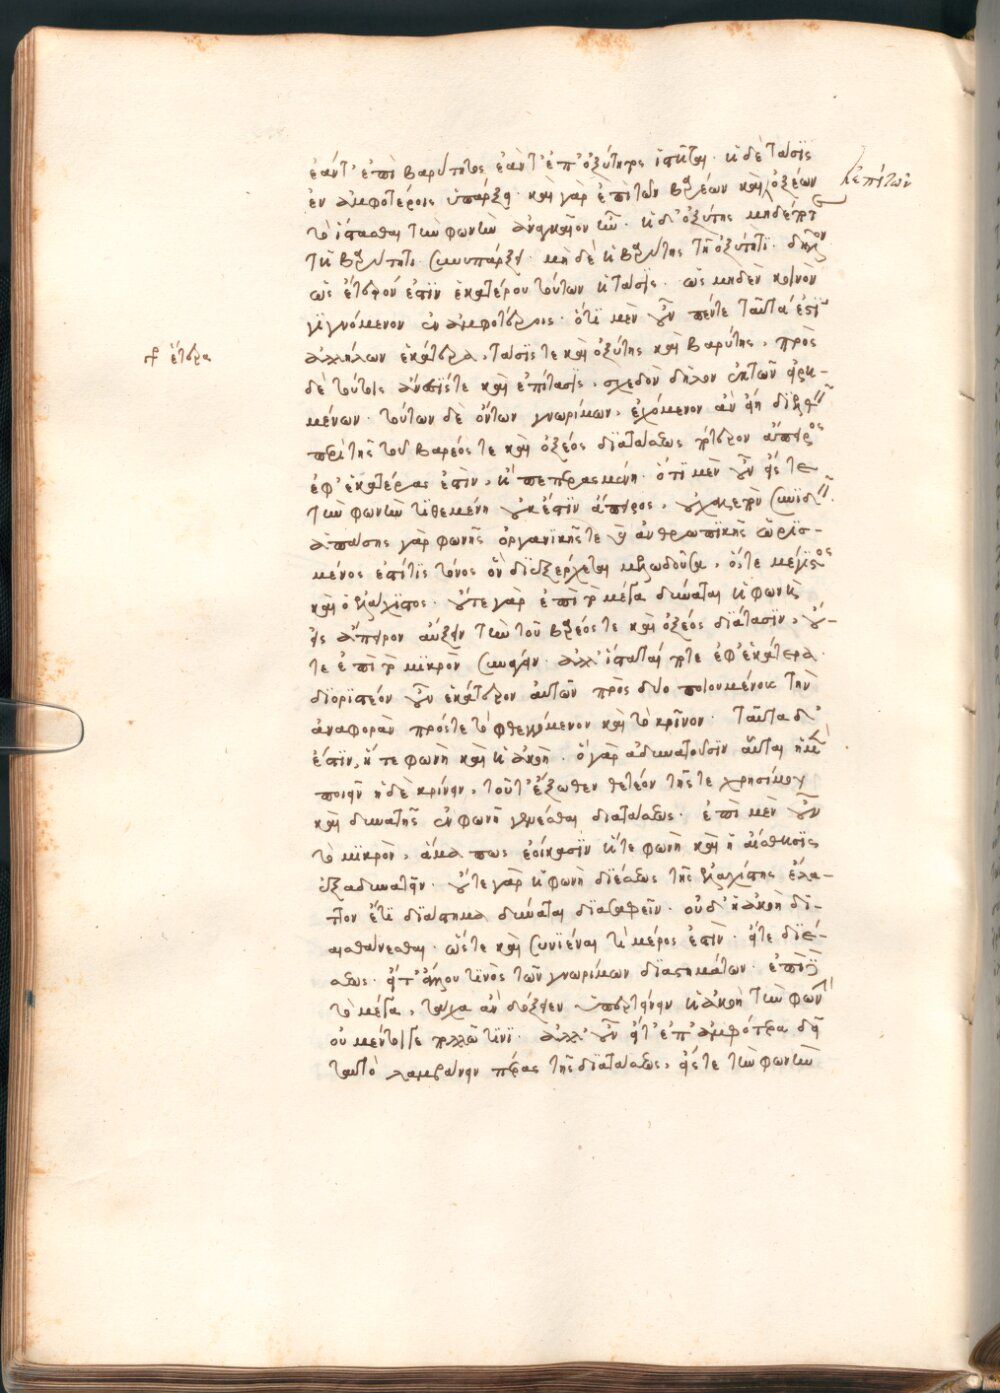 ἐάντ' ἐπὶ βαρύτητος ἐάντ' ἐπ' ὀξύτητος ἵσταται· ἡ δὲ τάσις
ἐν ἀμφοτέροις ὑπάρξει· καὶ γὰρ ἐπὶ τῶν βαρέων καὶ ὀξέων
ἐπὶ τῶν
τὸ ἵστασθαι τὴν φωνὴν ἀναγκαῖον ἦν· ἡ δ' ὀξύτης μηδέποτε
τῇ βαρύτητι συνυπάρξει· μηδὲ ἡ βαρύτης τῇ ὀξύτητι· δῆλον
ὡς ἕτερόν ἐστιν ἑκατέρου τούτων ἡ τάσις· ὡς μηδὲν κοινὸν
γιγνόμενον ἐν ἀμφοτέροις· ὅτι μὲν οὖν πέντε ταῦτά ἐστιν
ἕτερα
ἀλλήλων ἑκάτερα, τάσις τε καὶ ὀξύτης καὶ βαρύτης, πρὸς
δὲ τούτοις ἄνεσίς τε καὶ ἐπίτασις, σχεδὸν δῆλον ἐκ τῶν εἰρη-
μένων· τούτων δὲ ὄντων γνωρίμων, ἐχόμενον ἂν εἴη διελθεῖν
περὶ τῆς τοῦ βαρέος τε καὶ ὀξέος διατάσεως πότερον ἄπειρος
ἐφ' ἑκάτερά ἐστιν, ἢ πεπερασμένη· ὅτι μὲν οὖν εἴς τε
τὴν φωνὴν τιθεμένη οὐκ ἔστιν ἄπειρος, οὐ χαλεπὸν συνιδεῖν·
ἁπάσης γὰρ φωνῆς ὀργανικῆς τε καὶ ἀνθρωπικῆς ὡρισ-
μένος ἐστί τις τόπος ὃν διεξέρχεται μελῳδοῦσα, ὅ τε μέγιστος
καὶ ὁ ἐλάχιστος· οὔτε γὰρ ἐπὶ τὸ μέγα δύναται ἡ φωνὴ
εἰς ἄπειρον αὔξειν τὴν τοῦ βαρέος τε καὶ ὀξέος διάτασιν, οὔ-
τε ἐπὶ τὸ μικρὸν συνάγειν· ἀλλ' ἵσταταί ποτε ἐφ' ἑκάτερα·
διοριστέον οὖν ἑκάτερον αὐτῶν πρὸς δύο ποιουμένοις τὴν
ἀναφορὰν πρός τε τὸ φθεγγόμενον καὶ τὸ κρῖνον· ταῦτα δ'
ἐστὶν, ἥ τε φωνὴ καὶ ἡ ἀκοή· ὃ γὰρ ἀδυνατοῦσιν αὗται ἡ μὲν
ποιεῖν ἡ δὲ κρίνειν, τοῦτ' ἔξωθεν θετέον τῆς τε χρησίμου
καὶ δυνατῆς ἐν φωνῇ γενέσθαι διατάσεως· ἐπὶ μὲν οὖν
τὸ μικρὸν, ἅμα πως ἐοίκασιν ἥ τε φωνὴ καὶ ἡ αἴσθησις
ἐξαδυνατεῖν· οὔτε γὰρ ἡ φωνὴ διέσεως τῆς ἐλαχίστης ἔλα-
ττον ἔτι διάστημα δύναται διασαφεῖν· οὐδ' ἡ ἀκοὴ δι-
αισθάνεσθαι· ὥστε καὶ συνιέναι τί μέρος ἐστὶν· εἴτε διέ-
σεως· εἴτ' ἄλλου τινὸς τῶν γνωρίμων διαστημάτων· ἐπὶ δὲ
τὸ μέγα, τάχα ἂν δόξειεν ὑπερτείνειν ἡ ἀκοὴ τὴν φωνήν
οὐ μέντοι γε πολλῷ τινί· ἀλλ' οὖν εἴτ' ἐπ' ἀμφότερα δεῖ
ταυτὸ λαμβάνειν πέρας τῆς διατάσεως, εἴς τε τὴν φωνὴν